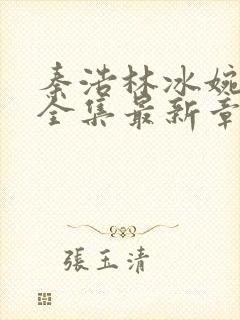 秦浩林冰婉
全集最新章
張玉清